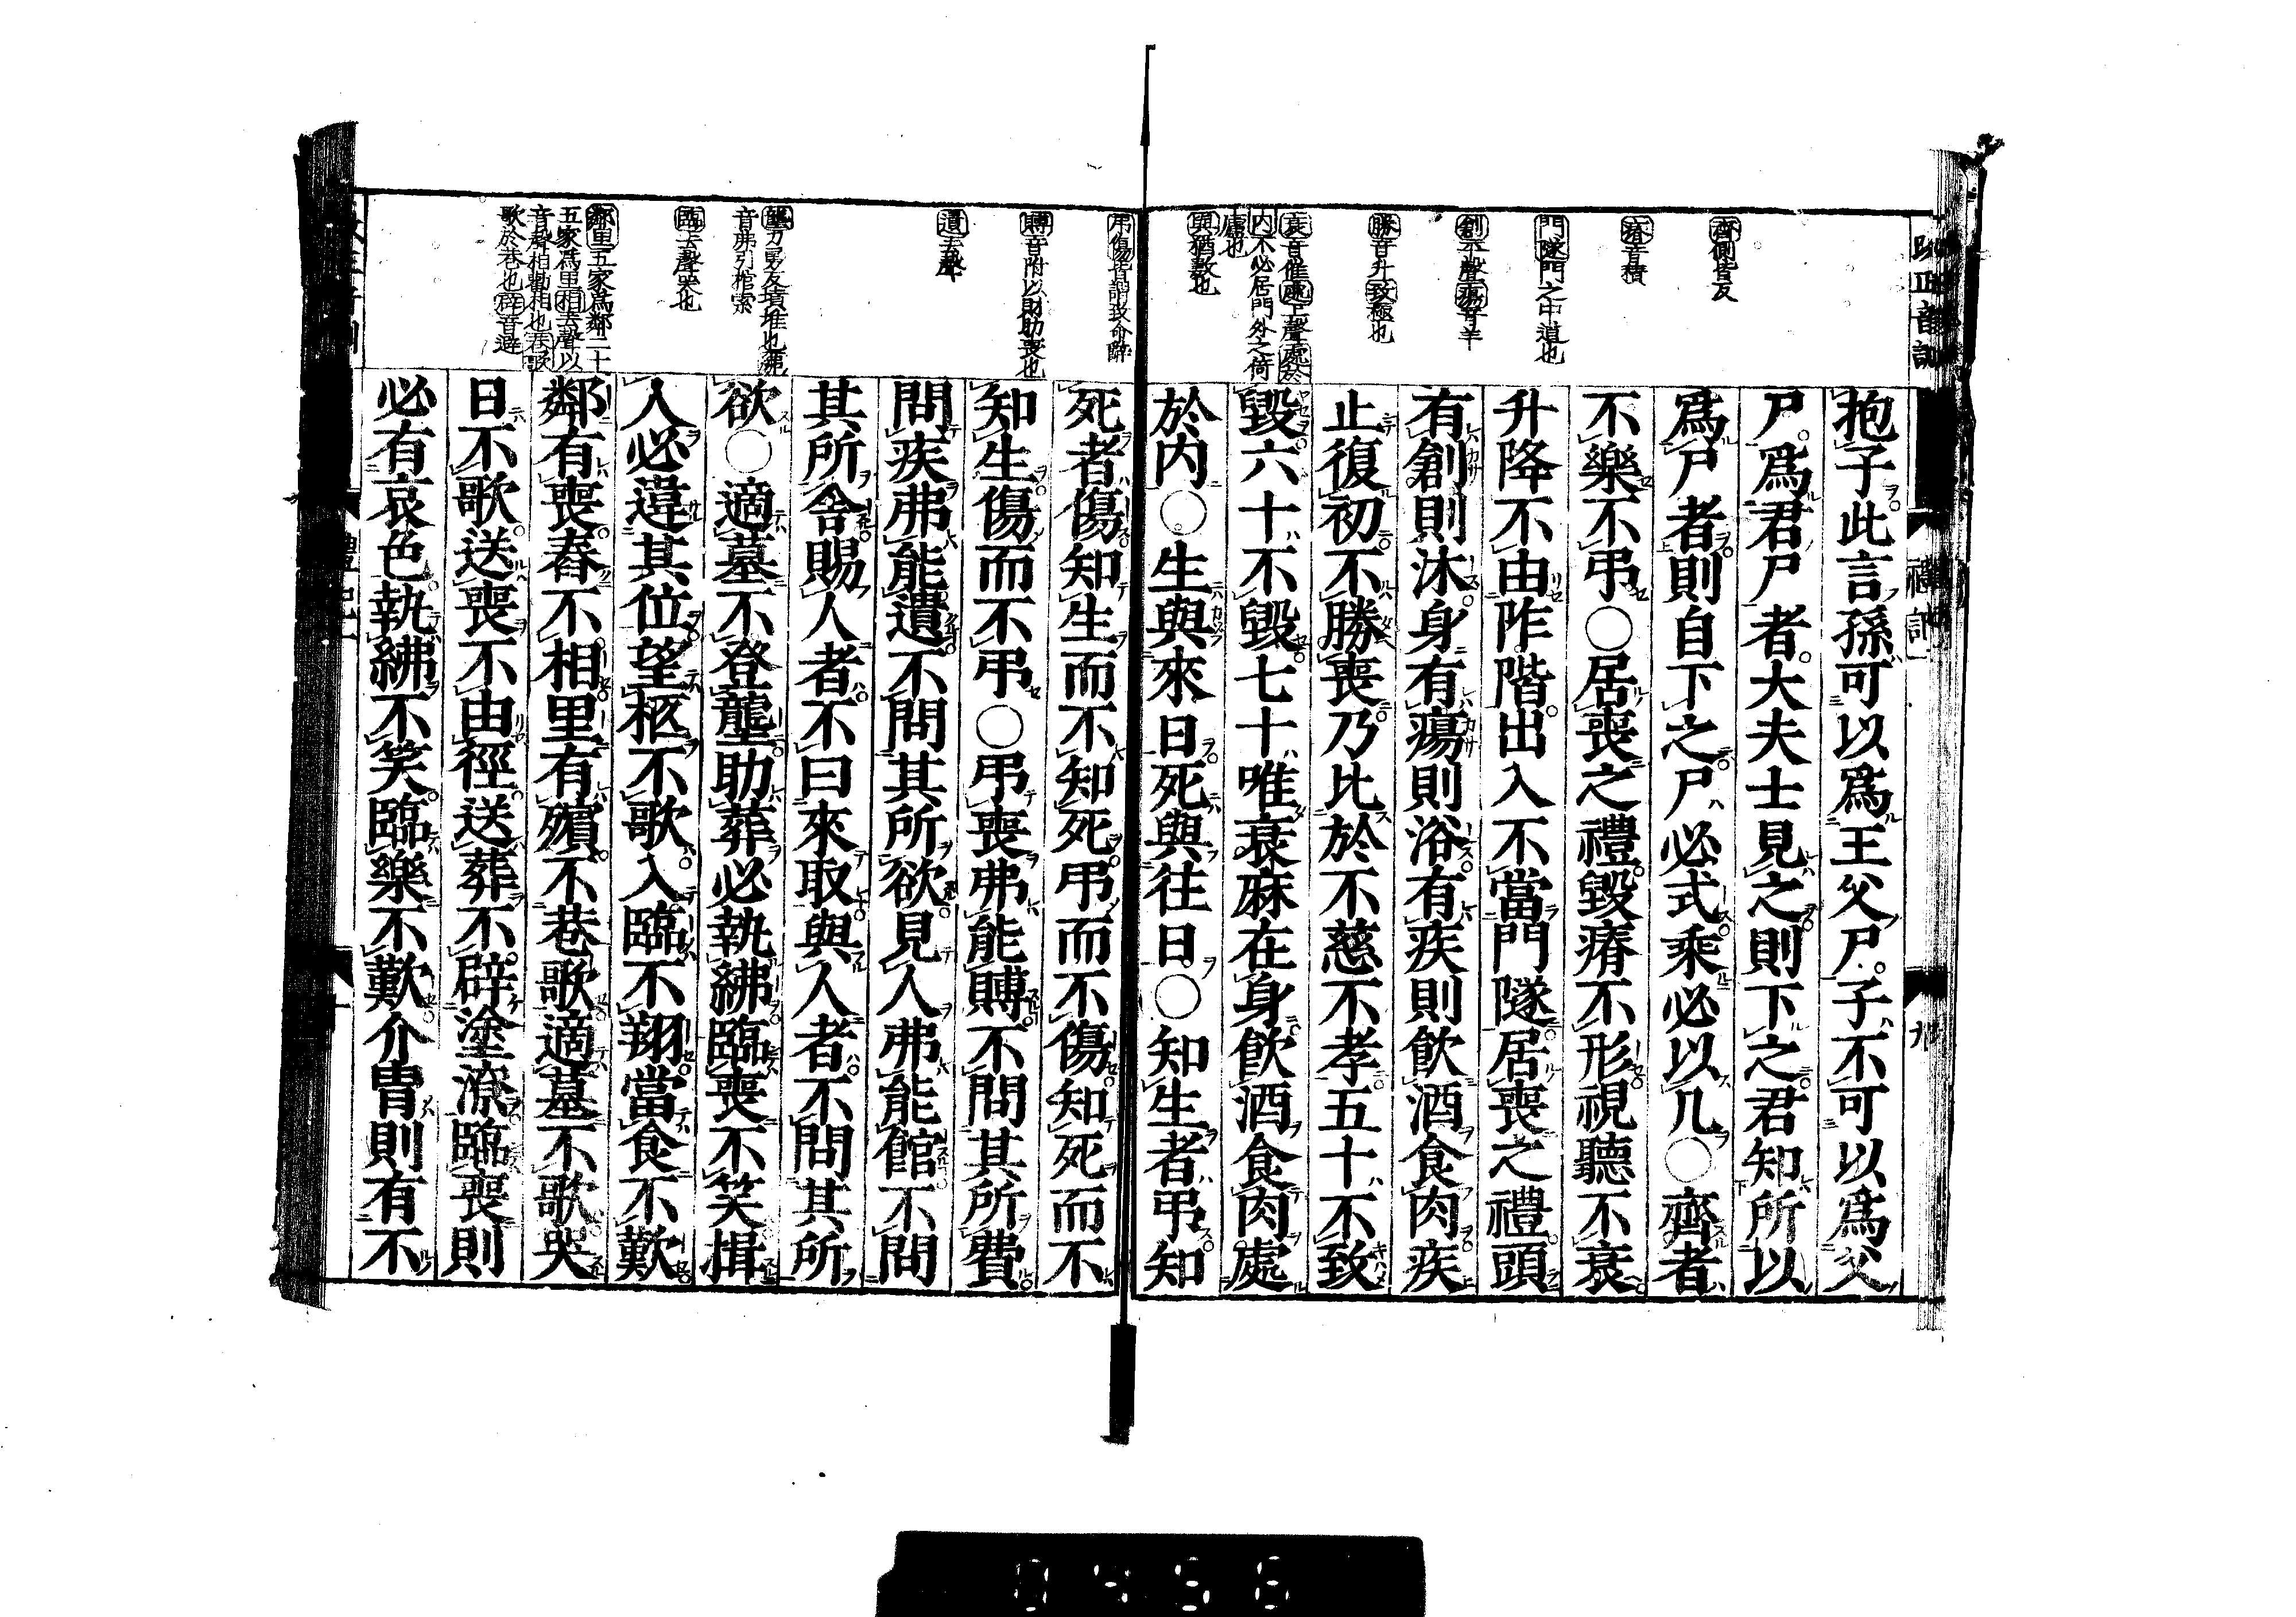 齊側皆反
瘠音積
門隧門之中道也
創平聲瘍音羊
勝音升致極也
衰音催處上聲處於
內不必居門外之倚
廬也
與猶數也
抱子此言孫可以爲王父尸子不可以爲父
尸爲君尸者大夫士見之則下之君知所以
爲尸者則自下之尸必式乘必以几○齊者
不樂不弔○居喪之禮毀瘠不形視聽不衰
升降不由阼階出入不當門隧居喪之禮頭
有創則沐身有瘍則浴有疾則飮酒食肉疾
止復初不勝喪乃比於不慈不孝五十不致
毀六十不毀七十唯衰麻在身飮酒食肉處
於內○生與來日死與往日○知生者弔知
弔傷皆謂致命辭
賻音附以財助喪也
遺去聲
壟力勇反墳堆也紼
音弗引棺索
臨去聲哭也
鄰里五家爲鄰二十
五家爲里相去聲以
音聲相勸相也巷歌
歌於巷也辟音避
死者傷知生而不知死弔而不傷知死而不
知生傷而不弔○弔喪弗能賻不問其所費
問疾弗能遺不問其所欲見人弗能館不問
其所舍賜人者不曰來取與人者不問其所
欲○適墓不登壟助葬必執紼臨喪不笑揖
人必違其位望柩不歌入臨不翔當食不歎
鄰有喪舂不相里有殯不巷歌適墓不歌哭
日不歌送喪不由徑送葬不辟塗潦臨喪則
必有哀色執紼不笑臨樂不歎介胄則有不